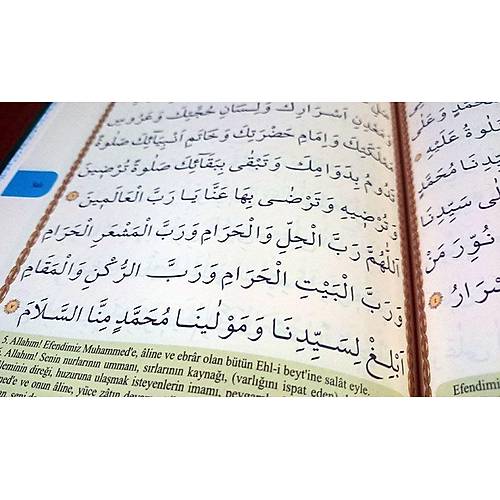 وَمَعْدِنِ اَسْرَارِكَ وَلِسَانِ حُجَّتِكَ وَعَرُوسِ
مَمْلَكَتِكَ وَاِمَامِ حَضْرَتِكَ وَخَاتَمِ اَنْبِيَائِكَ صَلٰوةً
تَدُومُ بِدَوَامِكَ وَتَبْقٰى بِبَقَائِكَ صَلٰوةً تُرْضِيكَ
وَتُرْضِيهِ وَتَرْضٰى بِهَا عَنَّا يَا رَبَّ الْعَالَمِينَ
اَللّٰهُمَّ رَبَّ الْحِلِّ وَالْحَرَامِ وَرَبَّ الْمَشْعَرِ الْحَرَامِ
وَرَبَّ الْبَيْتِ الْحَرَامِ وَرَبَّ الرُّكْنِ وَالْمَقَامِ
اَبْلِغْ لِسَيِّدِنَا وَمَوْلٰينَا مُحَمَّدٍ مِنَّا السَّلَامَ
5. Allahım! Efendimiz Muhammed'e, âline ve ebrâr olan bütün Ehl-i beyt'ine salât eyle.
6. Allahım! Senin nurlarının ummanı, sırlarının kaynağı, (varlığını ispat eden)
âleminin direği, huzuruna ulaşmak isteyenlerin imamı,
ve onun âline, yüce zâtın
مُحَمَّدٍ وَعَلٰى
صَلٰوةُ عَلَيْهِ
سَيِّدِنَا مُحَمَّدٍ
سَيِّدِنَا
نُوِّرَ مَنْ
Efendimiz